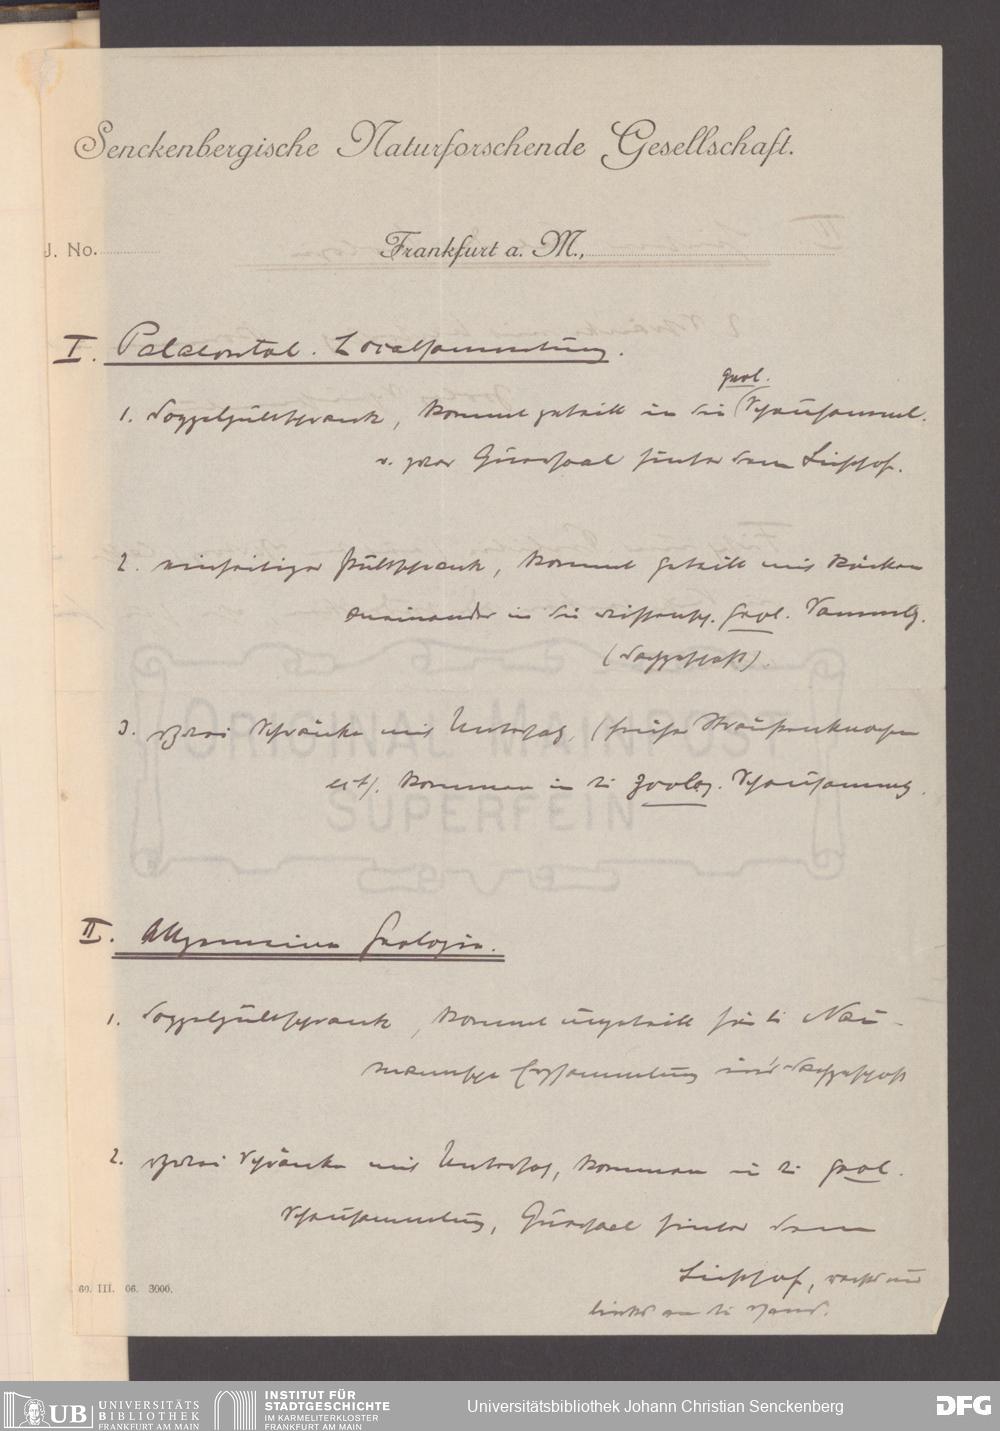 Senckenbergische Naturforschende Gesellschaft.
J. No.
Frankfurt a. M.,
I. Palaeontol. Localsammlung.
geol.
1. Doppelpultschrank, kommt geteilt in die Schausamml.
u. zwar Quersaal hinter dem Lichthof.
2. einseitiger Pultschrank, kommt geteilt mit Rücken
aneinander in die wissensch. geol. Sammlg.
(Dachgeschoß).
3. zwei Schränke mit Untersatz, (früher Straußenknochen
etc). kommen in d. zoolog. Schausammlg.
ORIGINAL MAINPOST
SUPERFEIN
II. Allgemeine Geologie.
1. Doppelpultschrank, kommt ungeteilt für d. Nau-
mannsche Erzsammlung in's Dachgeschoß
2. zwei Schränke mit Untersatz, kommen in d. geol.
Schausammlung, Quersaal hinter dem
Lichthof, rechts und
links an d. Wand.
60. III. 06. 3000.
UB UNIVERSITÄTS
BIBLIOTHEK
FRANKFURT AM MAIN
INSTITUT FÜR
STADTGESCHICHTE
IM KARMELITERKLOSTER
FRANKFURT AM MAIN
Universitätsbibliothek Johann Christian Senckenberg
DFG